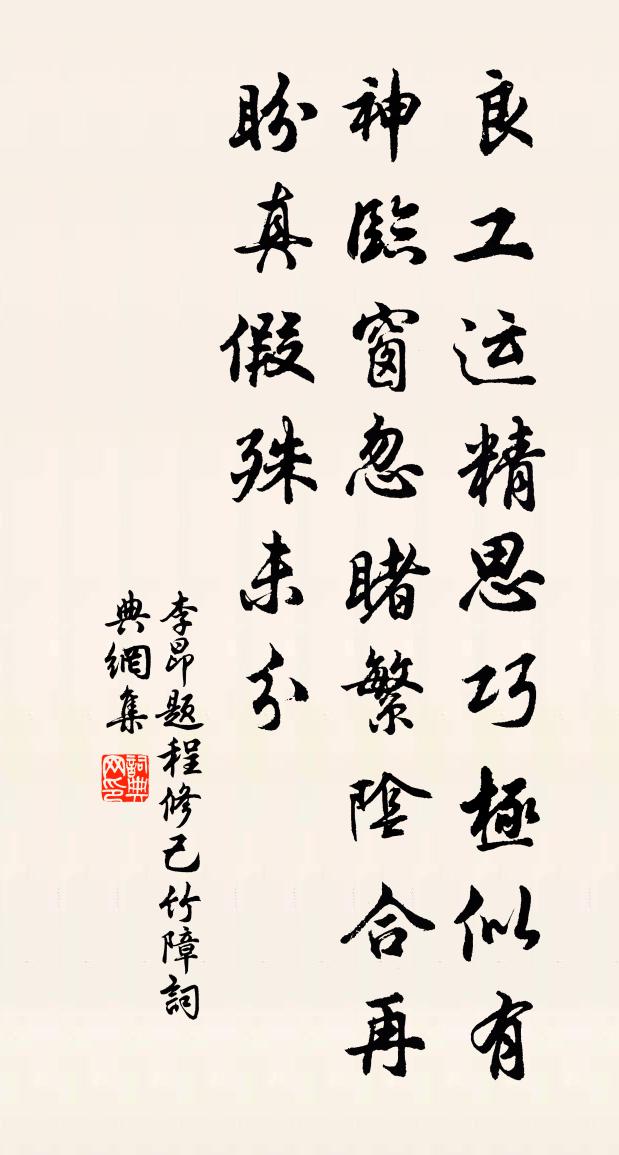 良工运精思巧極似有
神臨窗忽睹繁陰合再
盼真假殊未分
李昂题程修己竹障詞
典網集
詞典网印